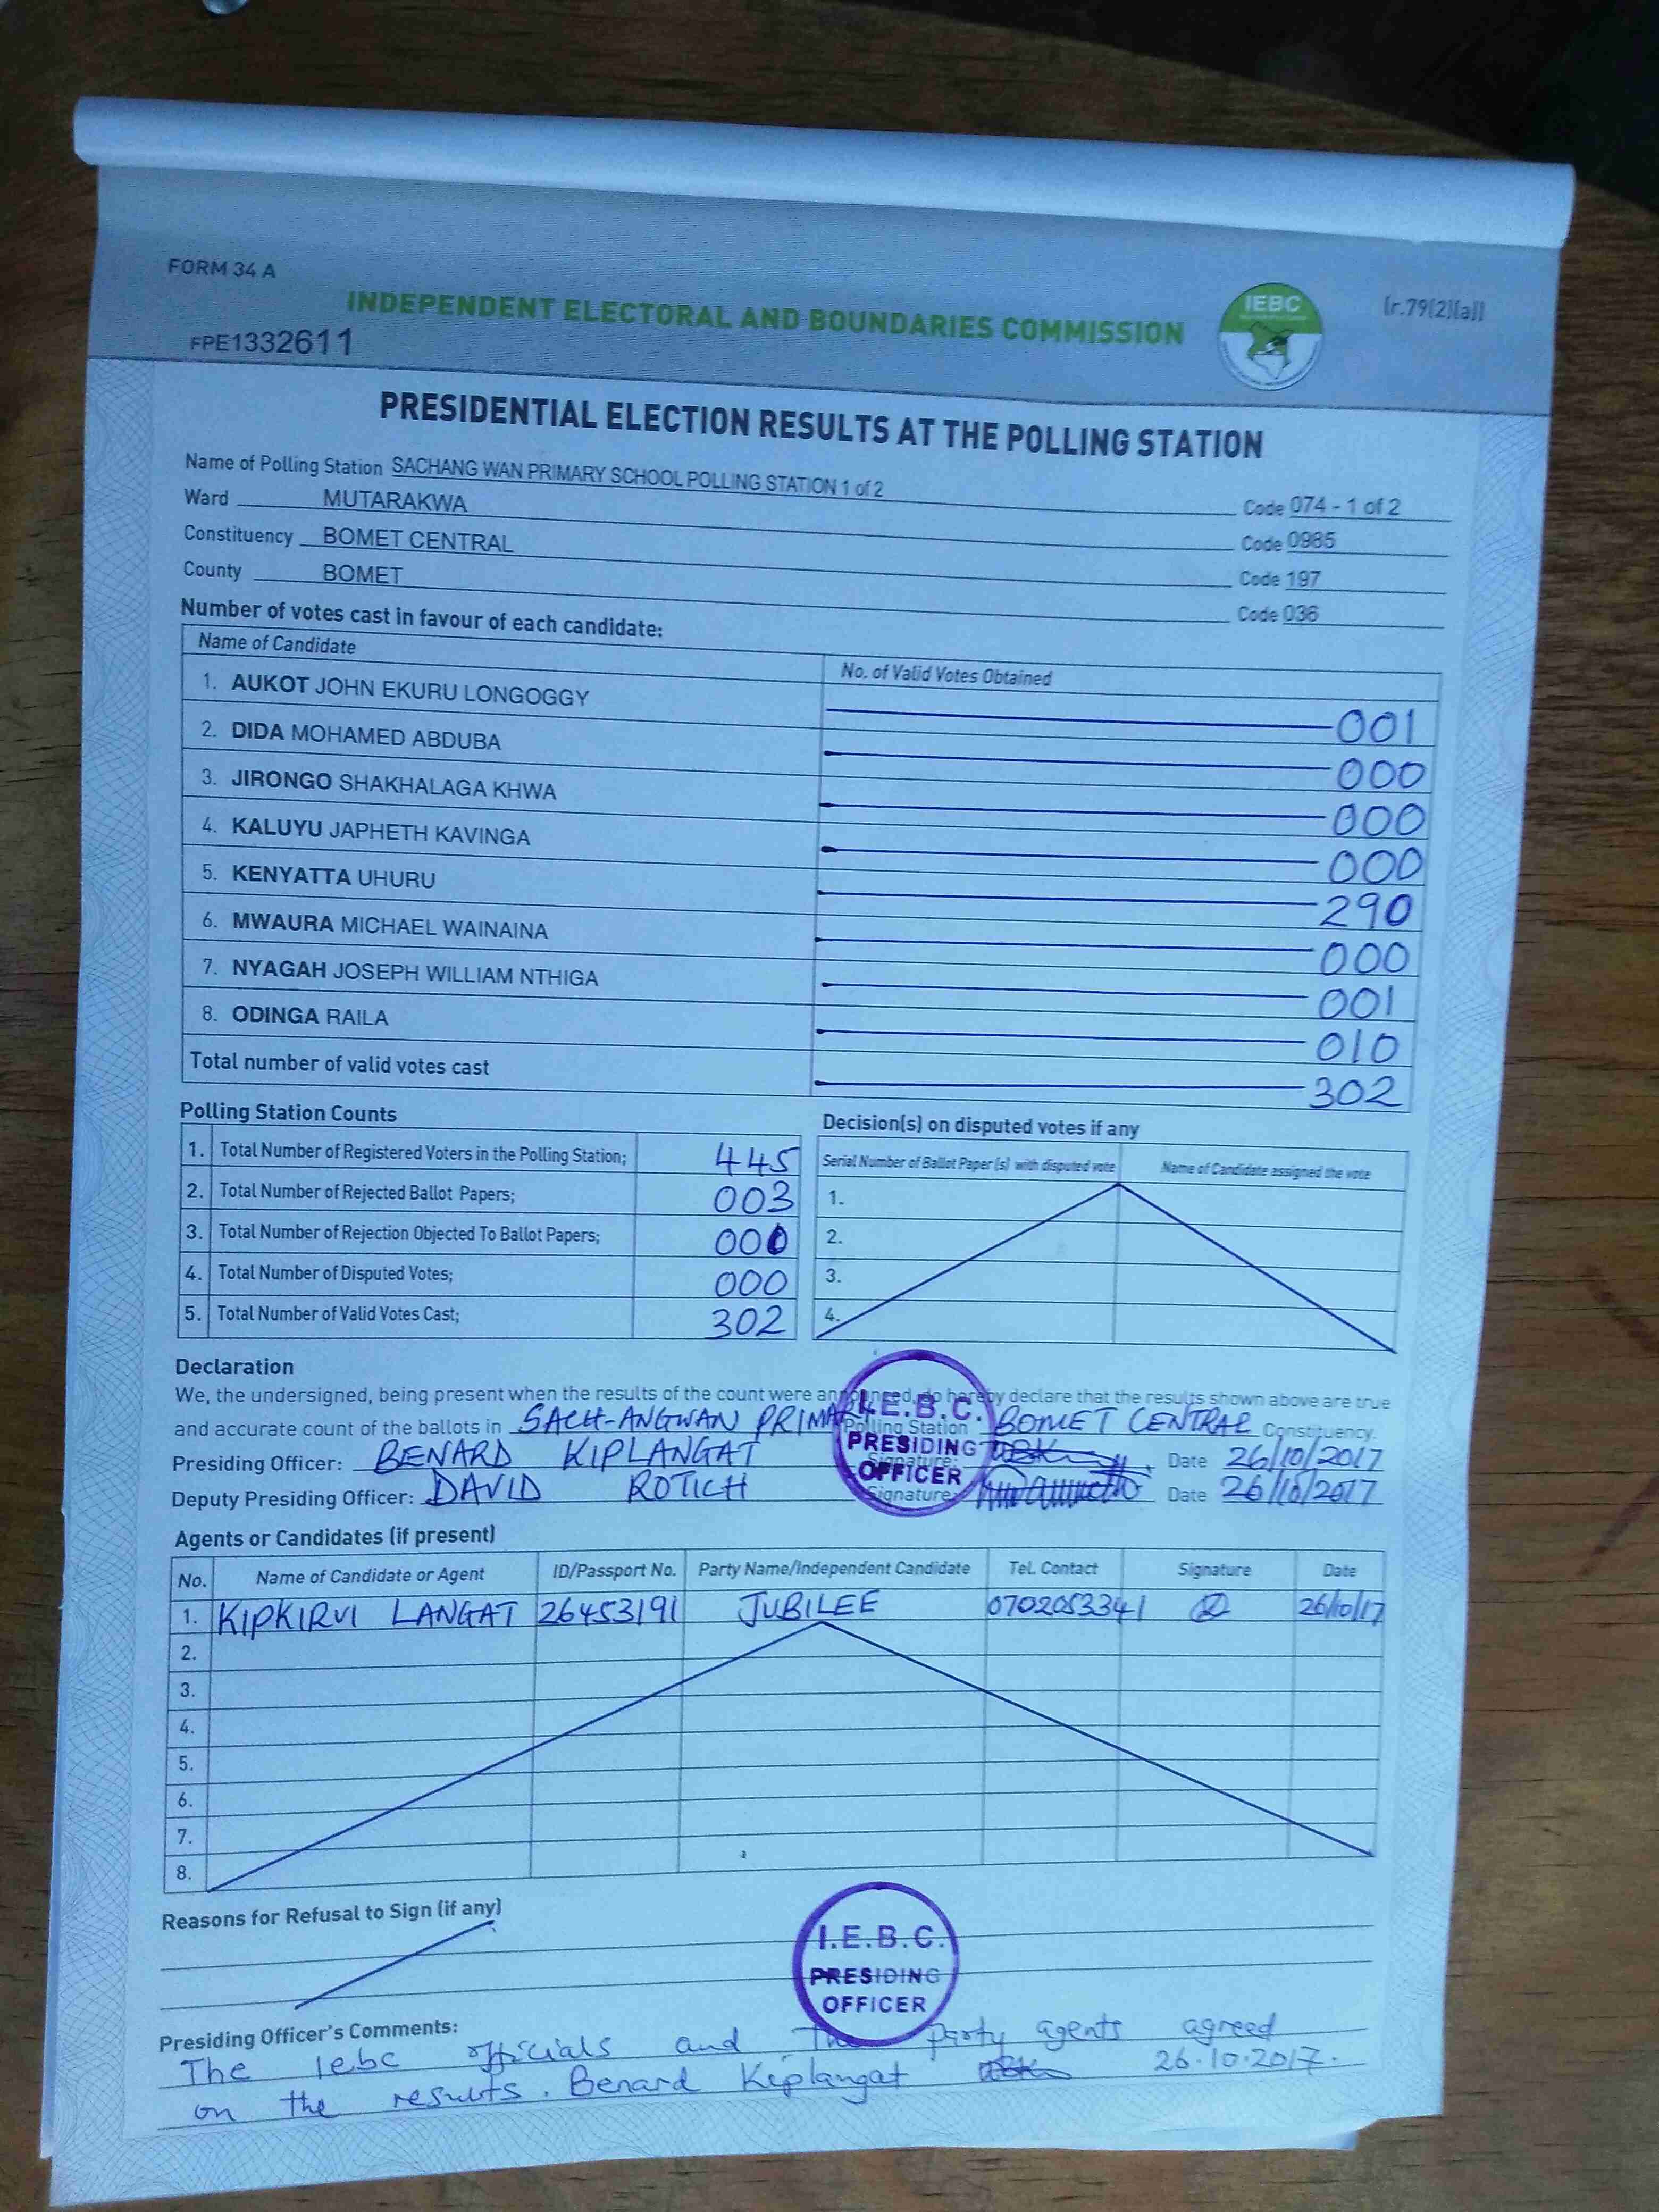 FORM 34 A
INDEPENDENT ELECTORAL AND BOUNDARIES COMMISSION
IEBC
(r.79(2)(a))
FPE1332611
PRESIDENTIAL ELECTION RESULTS AT THE POLLING STATION
Name of Polling Station SACHANG WAN PRIMARY SCHOOL POLLING STATION 1 of 2 Code 074 - 1 of 2
Ward MUTARAKWA Code 0985
Constituency BOMET CENTRAL Code 197
County BOMET Code 036
Number of votes cast in favour of each candidate:
Name of Candidate No. of Valid Votes Obtained
1. AUKOT JOHN EKURU LONGOGGY 001
2. DIDA MOHAMED ABDUBA 000
3. JIRONGO SHAKHALAGA KHWA 000
4. KALUYU JAPHETH KAVINGA 000
5. KENYATTA UHURU 290
6. MWAURA MICHAEL WAINAINA 000
7. NYAGAH JOSEPH WILLIAM NTHIGA 001
8. ODINGA RAILA 010
Total number of valid votes cast 302
Polling Station Counts
1. Total Number of Registered Voters in the Polling Station; 445
2. Total Number of Rejected Ballot Papers; 003
3. Total Number of Rejection Objected To Ballot Papers; 000
4. Total Number of Disputed Votes; 000
5. Total Number of Valid Votes Cast; 302
Decision(s) on disputed votes if any
Serial Number of Ballot Paper(s) with disputed vote Name of Candidate assigned the vote
1.
2.
3.
4.
Declaration
We, the undersigned, being present when the results of the count were announced, do hereby declare that the results shown above are true
and accurate count of the ballots in SACH-ANGWAN PRIMARY Polling Station BOMET CENTRAL Constituency.
Presiding Officer: BENARD KIPLANGAT Signature: Date 26/10/2017
Deputy Presiding Officer: DAVID ROTICH Signature: Date 26/10/2017
I.E.B.C.
PRESIDING
OFFICER
Agents or Candidates (if present)
No. Name of Candidate or Agent ID/Passport No. Party Name/Independent Candidate Tel. Contact Signature Date
1. KIPKIRUI LANGAT 26453191 JUBILEE 0702053341 26/10/17
2.
3.
4.
5.
6.
7.
8.
Reasons for Refusal to Sign (if any)
I.E.B.C.
PRESIDING
OFFICER
Presiding Officer's Comments:
The Iebc officials and The party agents agreed
on the results. Benard Kiplangat 26.10.2017.